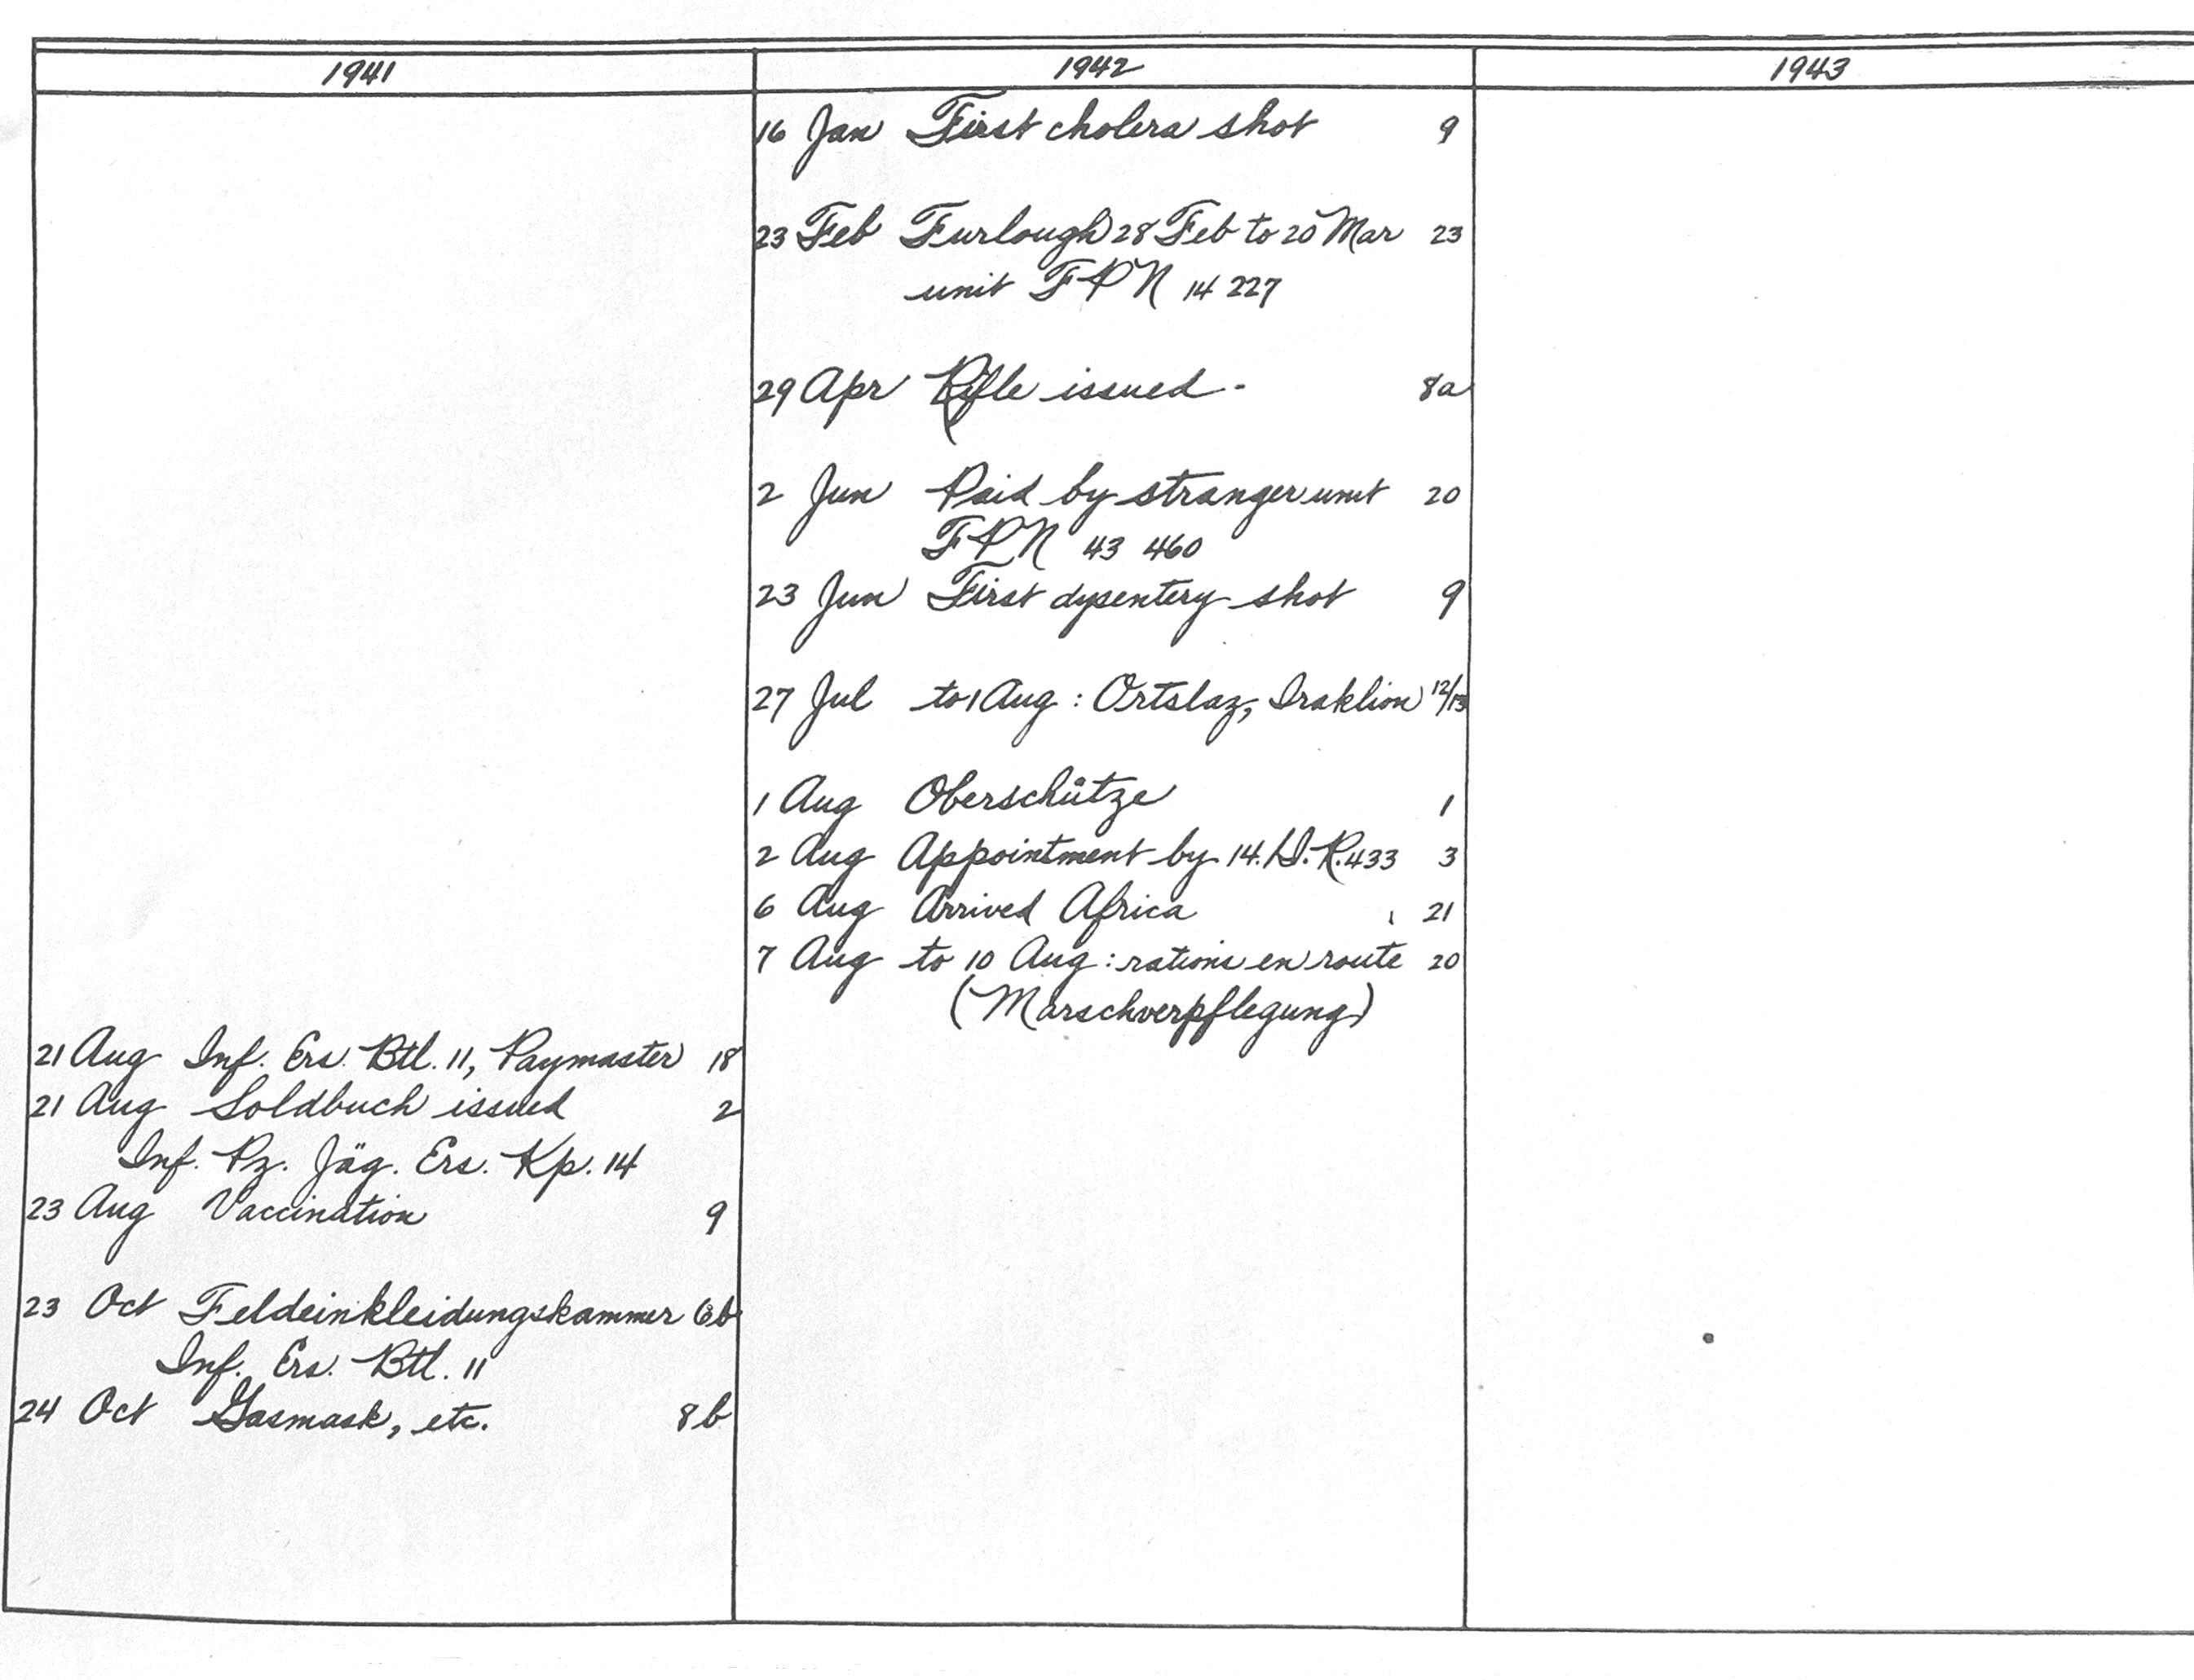 1941
21 Aug Inf. Ers. Btl. 11, Paymaster 18
21 Aug Soldbuch issued 2
Inf. Pz. Jäg. Ers. Kp. 14
23 Aug Vaccination 9
23 Oct Feldeinkleidungskammer 6b
Inf. Ers. Btl. 11
24 Oct Gasmask, etc. 8b
1942
16 Jan First cholera shot 9
23 Feb Furlough 28 Feb to 20 Mar 23
unit FPN 14 227
29 Apr Rifle issued - 8a
2 Jun Paid by stranger unit 20
FPN 43 460
23 Jun First dysentery shot 9
27 Jul to 1 Aug : Ortslaz, Iraklion 12/13
1 Aug Oberschütze 1
2 Aug Appointment by 14./I.R.433 3
6 Aug Arrived Africa 21
7 Aug to 10 Aug : rations en route 20
(Marschverpflegung)
1943